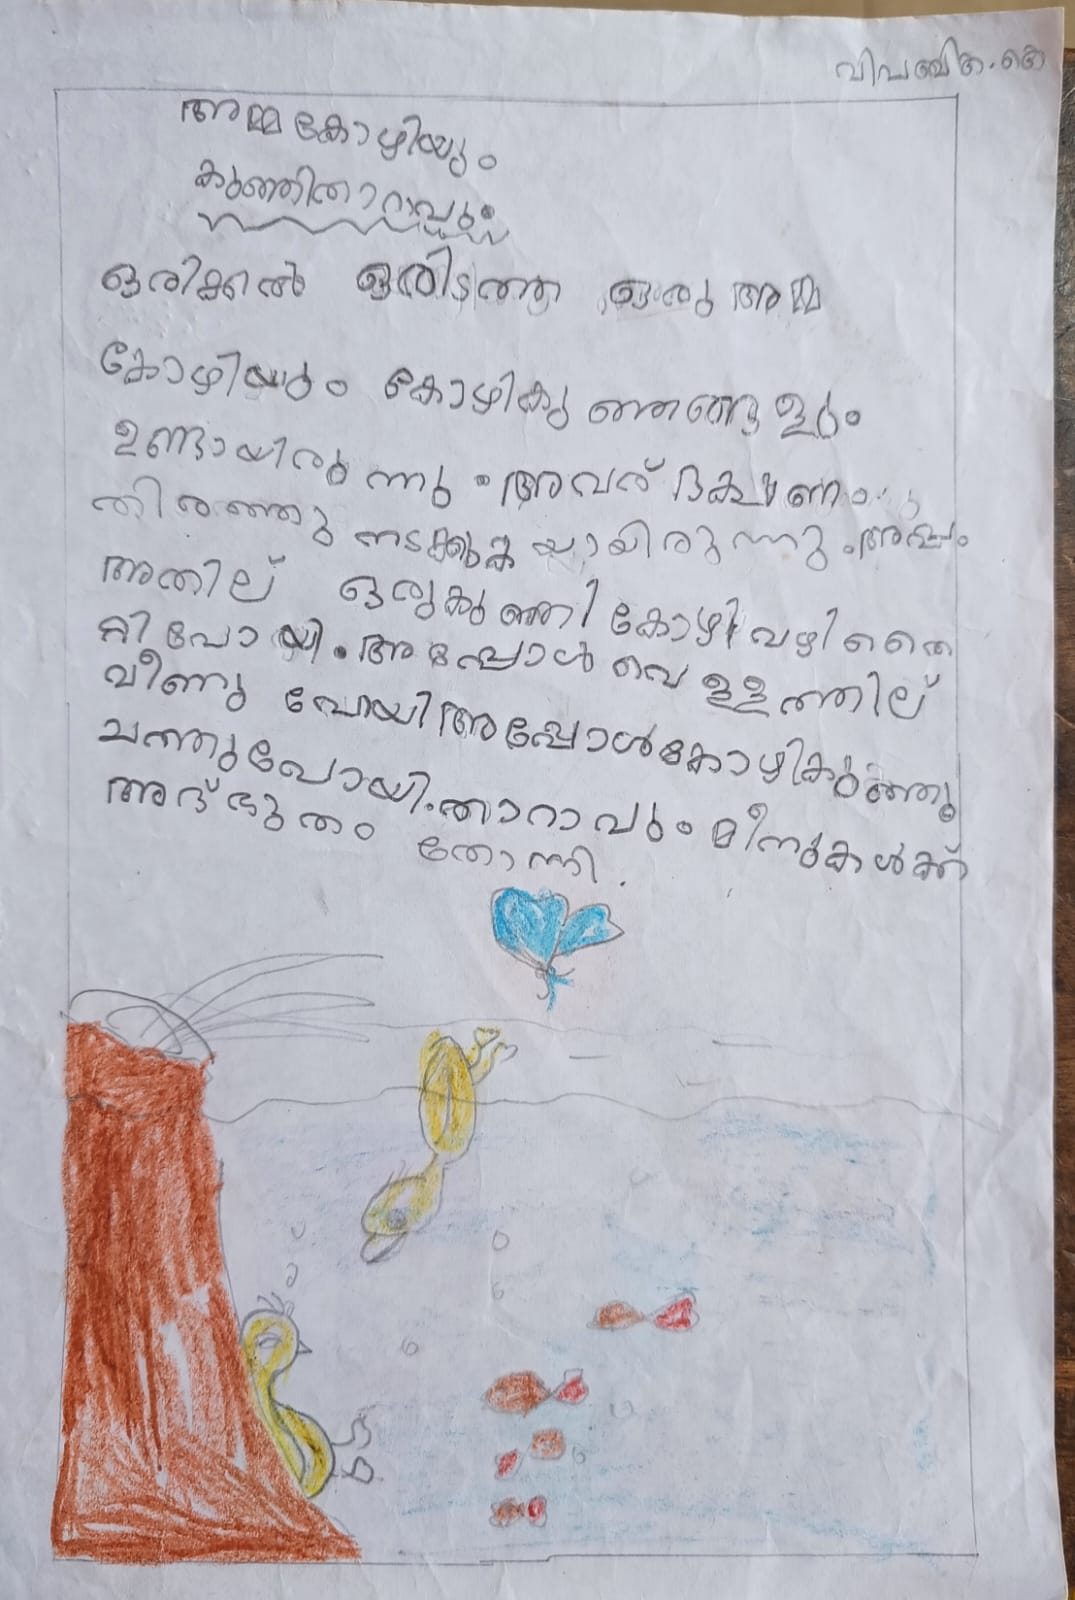 അമ്മകോഴിയും
കുഞ്ഞിതാറാവും
ഒരിക്കൽ ഒരിടത്ത ഒരു അമ്മ
കോഴിയും കോഴികുഞ്ഞങ്ങളും
ഉണ്ടായിരുന്നു. അവര് ഭക്ഷണം
തിരഞ്ഞു നടക്കുകയായിരുന്നു. അപ്പം
അതില് ഒരുകുഞ്ഞി കോഴി വഴി തെ
റ്റി പോയി. അപ്പോൾ വെള്ളത്തില്
വീണു പോയി അപ്പോൾ കോഴികുഞ്ഞു
ചത്തുപോയി. താറാവും മീനുകൾക്ക്
അദ്ഭുതം തോന്നി.